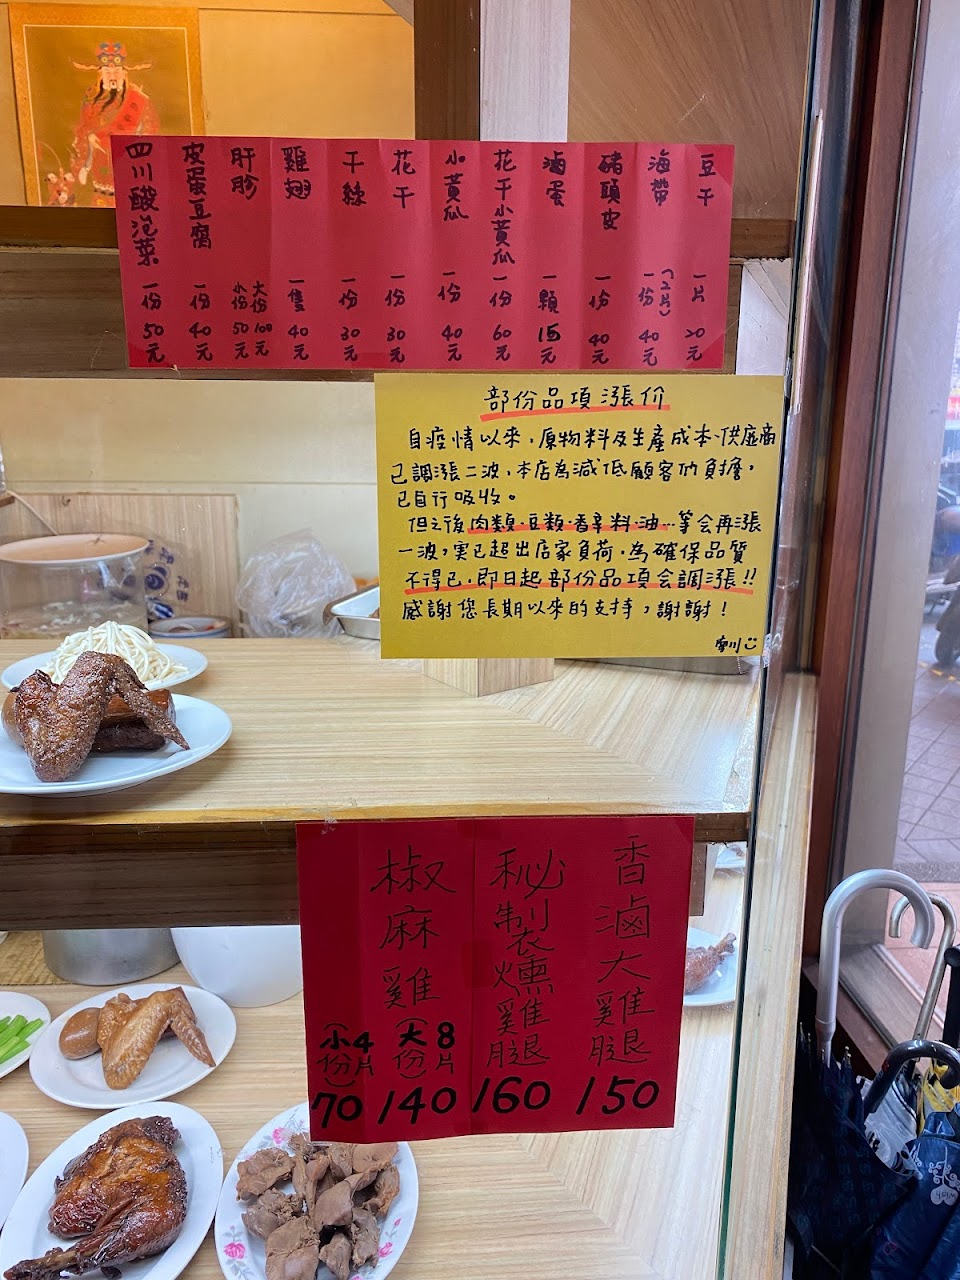 豆干 一片 20元
海帶 (12片) 一份 40元
豬頭皮 一份 40元
滷蛋 一顆 15元
花干小黃瓜 一份 60元
小黃瓜 一份 40元
花干 一份 30元
干絲 一份 30元
雞翅 一隻 40元
肝胗 大份100元 小份50元
皮蛋豆腐 一份 40元
四川酸泡菜 一份 50元
部份品項漲价
自疫情以來,原物料及生產成本、供應商
已調漲二波,本店為減低顧客们負擔,
已自行吸收。
但之後肉類、豆類、香辛料、油…等會再漲
一波,実已超出店家負荷,為確保品質
不得已,即日起部份品項会調漲!!
感謝您長期以來的支持,謝謝!
香滷大雞腿
150
秘製燻雞腿
160
椒麻雞
(大份) 8片 140
(小份) 4片 70